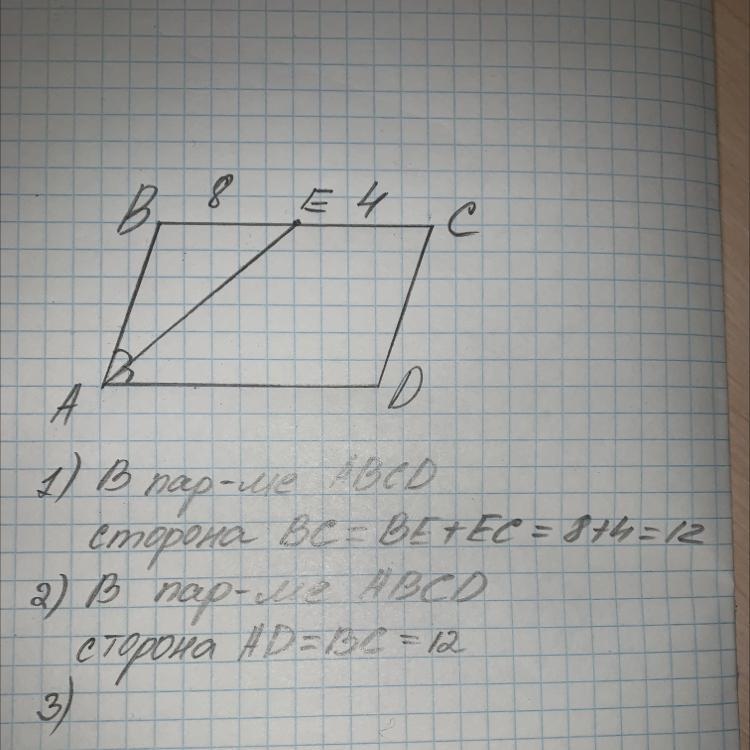 B 8 E 4 C
A D
1) В пар-ме ABCD
сторона BC = BE + EC = 8+4=12
2) В пар-ме ABCD
сторона AD = BC = 12
3)